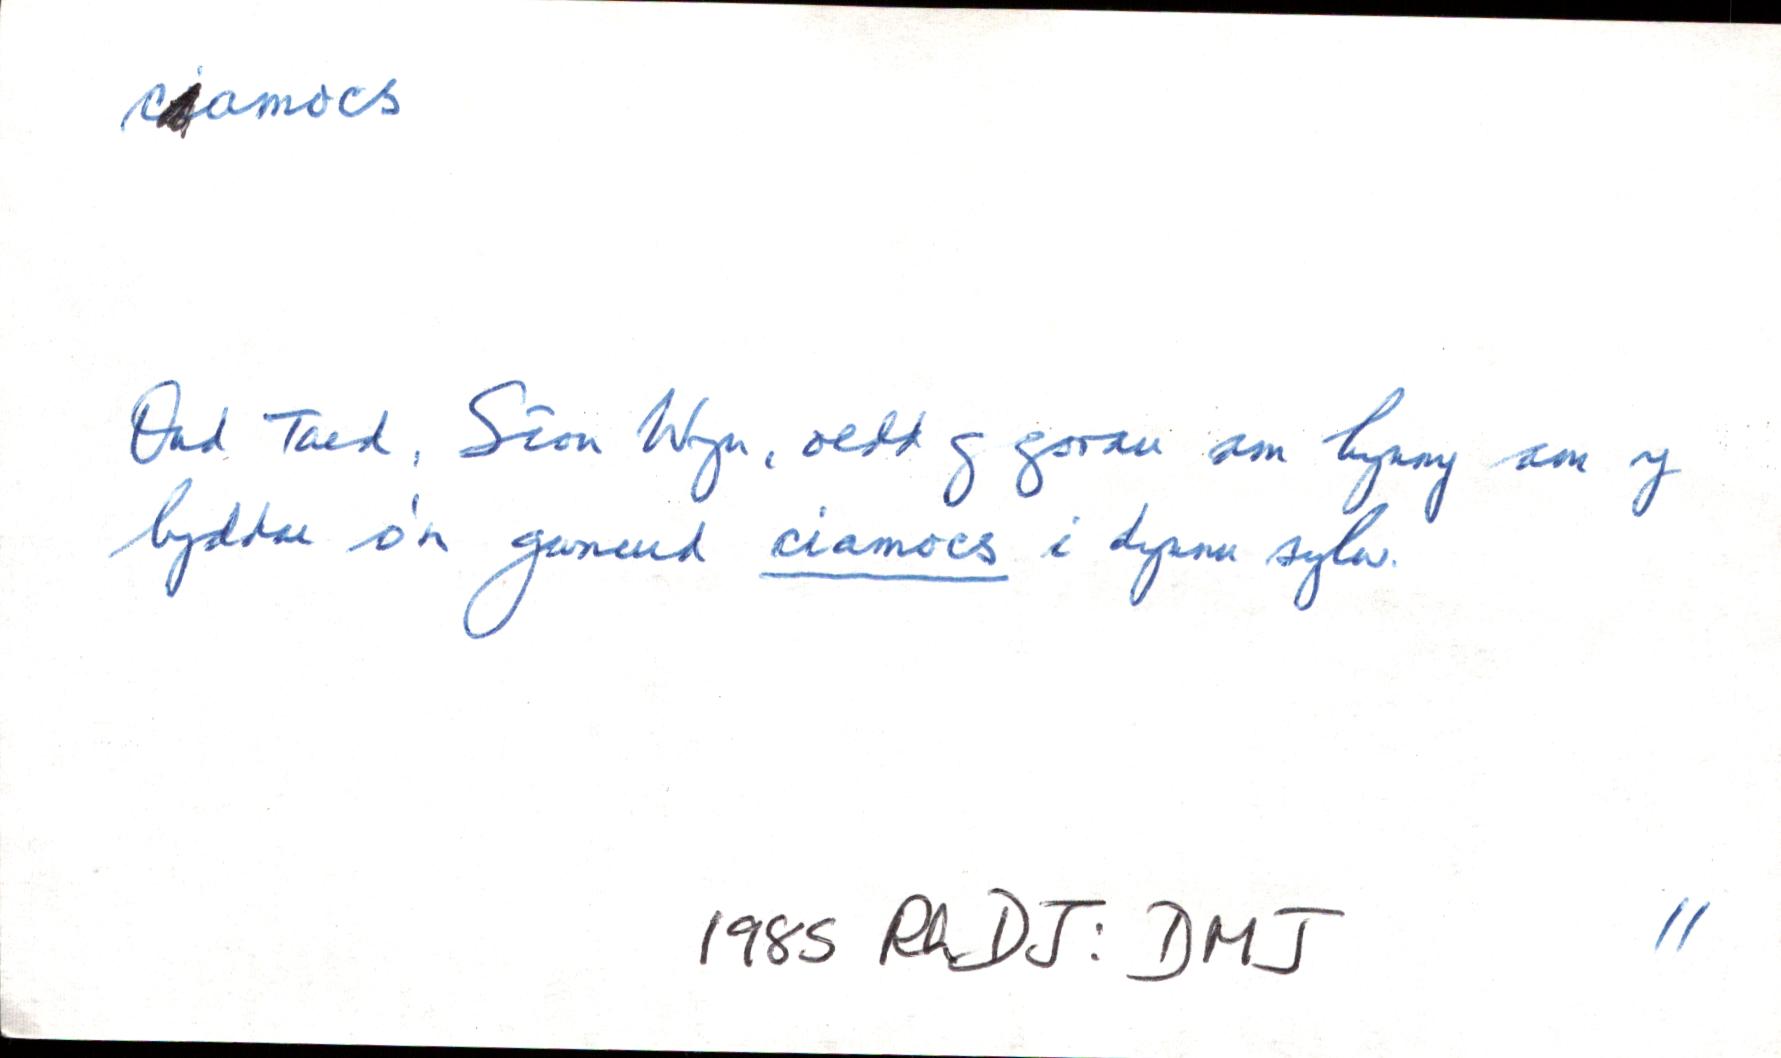 ciamocs
Ond Taid, Siôn Wyn, oedd y gorau am hynny am y
byddai o'n gwneud ciamocs i dynnu sylw.
1985 RhDJ: DMJ 11